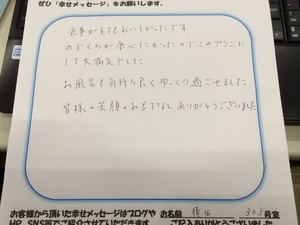 ぜひ「幸せメッセージ」をお願いします。
食事がとてもおいしかったです
のどぐろが食べたかったのでこのプランに
して大満足でした。
お風呂も気持ち良くゆっくり過ごせました
皆様の笑顔のおもてなしありがとうございました
お客様から頂いた幸せメッセージはブログや
HP、SNS等でご紹介させていただきます
お名前 須田 303号室
ご記入ありがとうございました